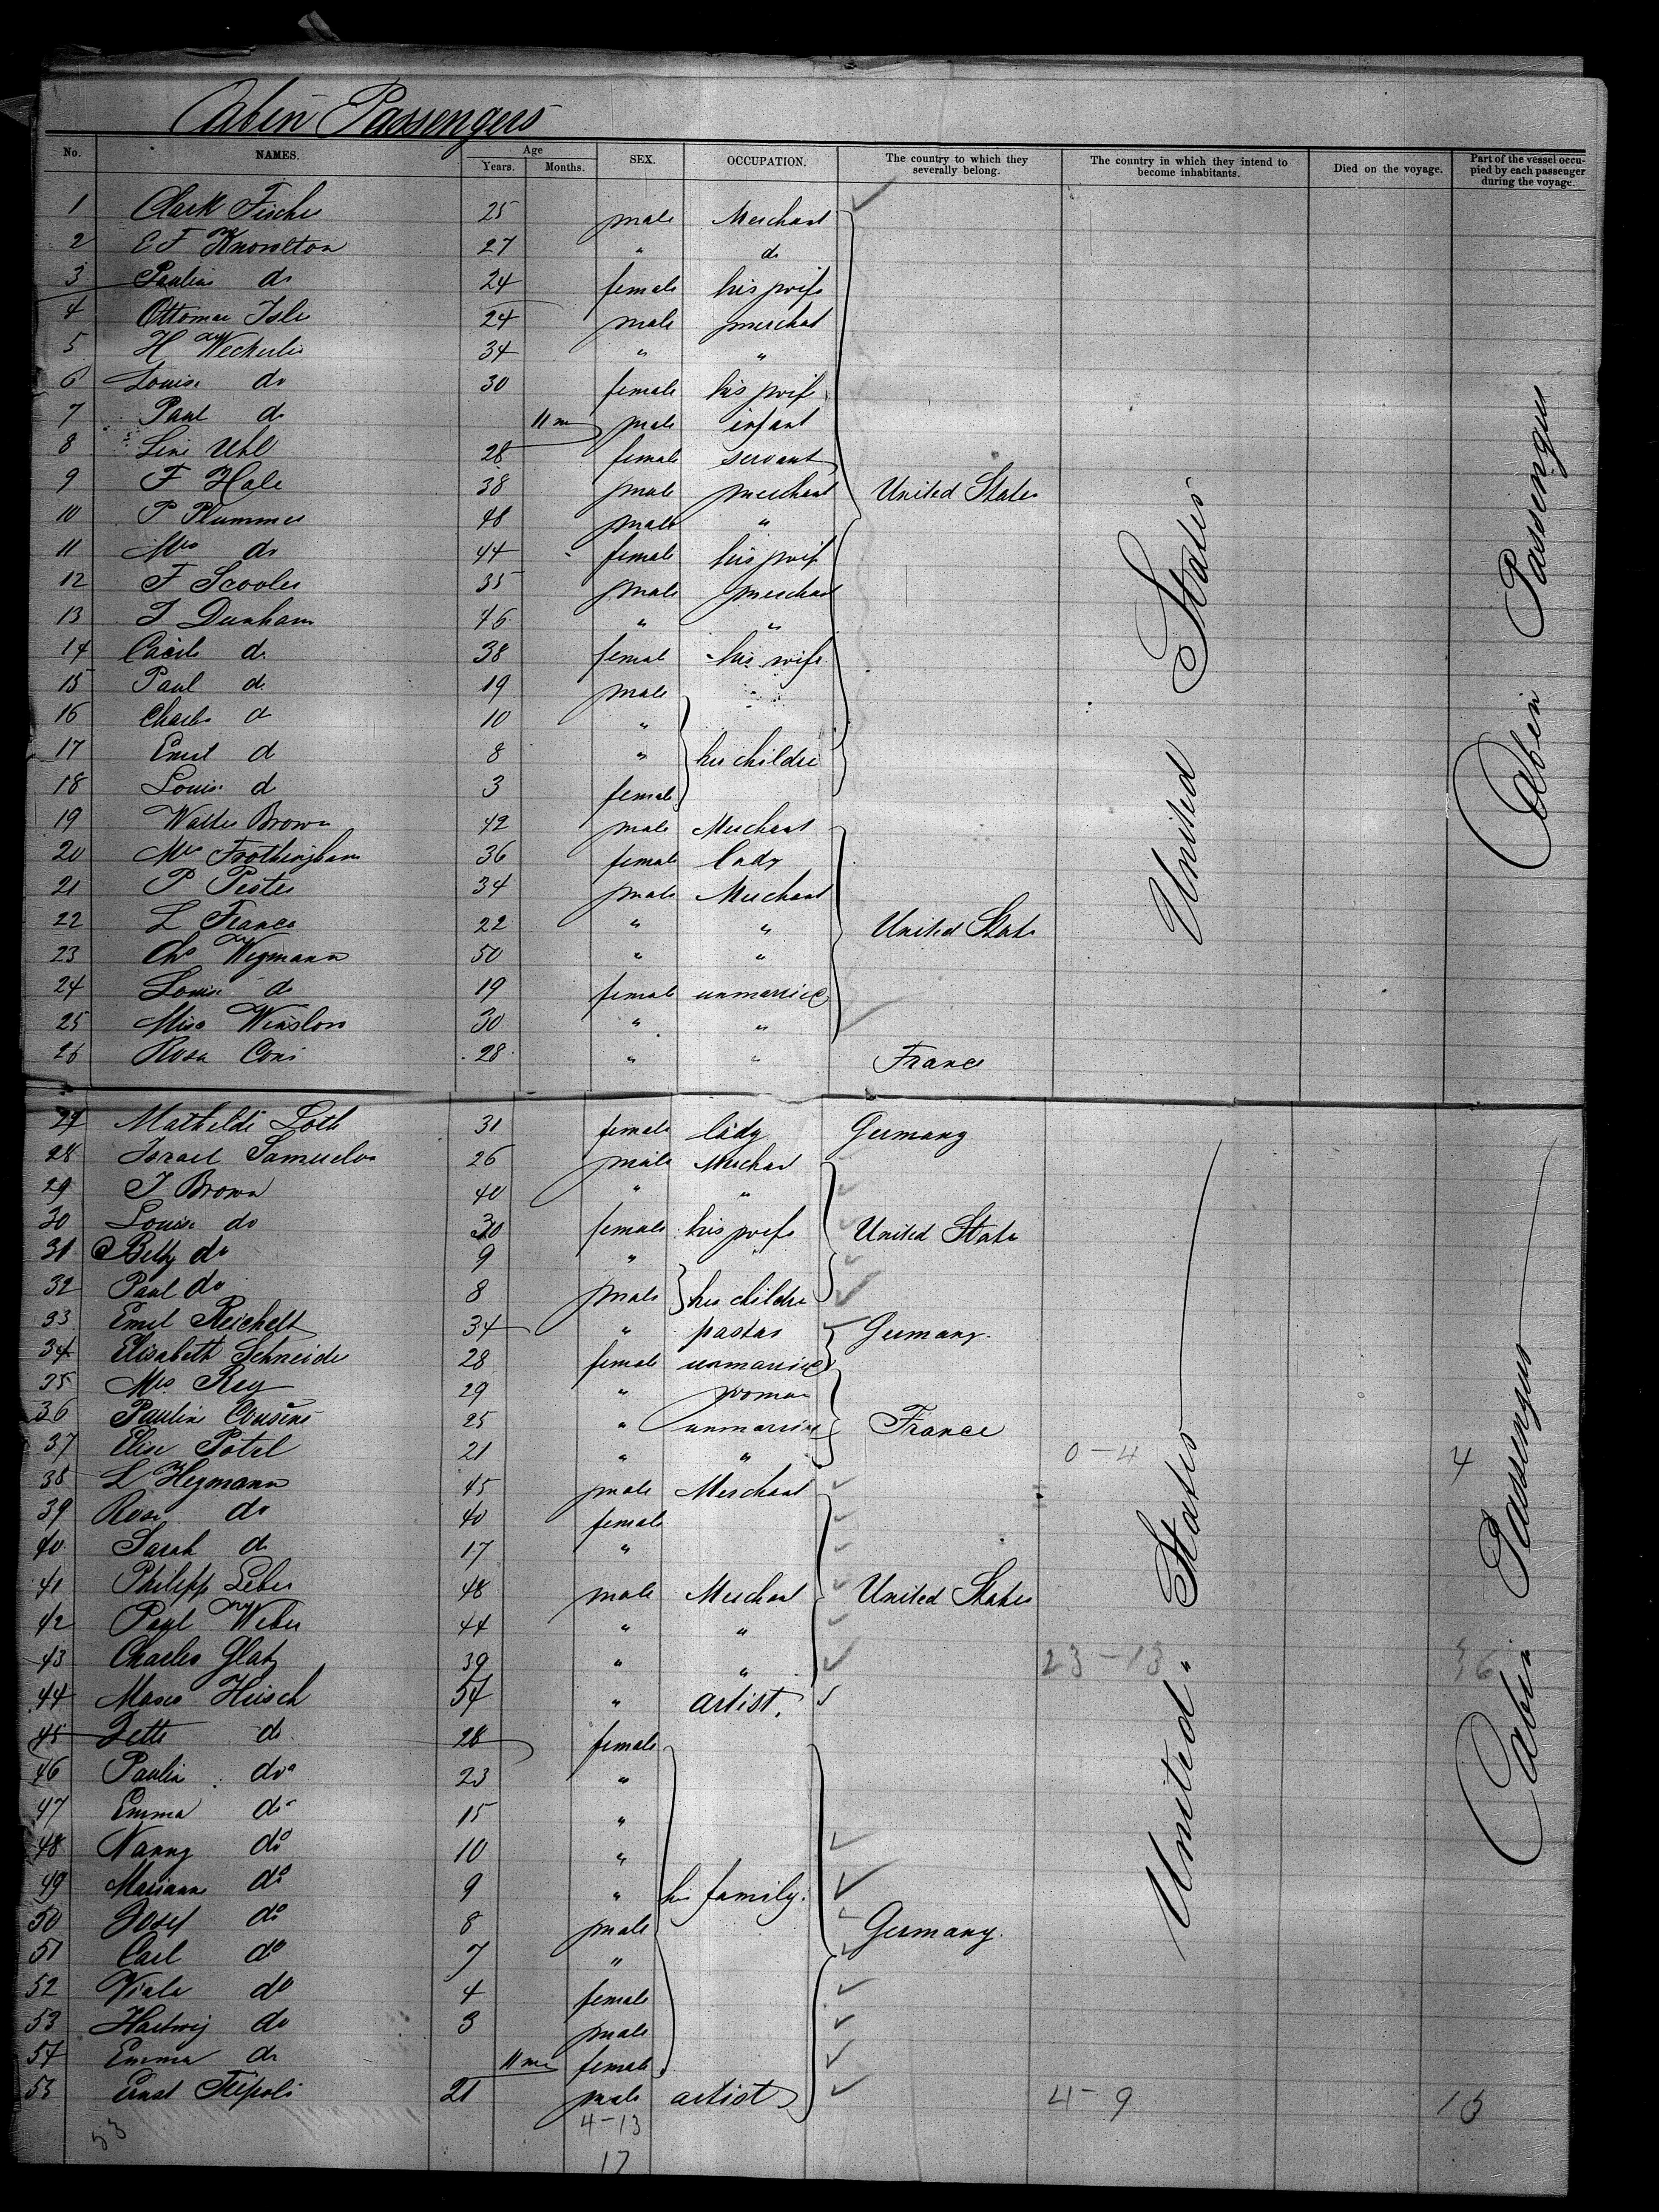 Cabin Passengers
No. NAMES. Age Years. Months. SEX. OCCUPATION. The country to which they severally belong. The country in which they intend to become inhabitants. Died on the voyage. Part of the vessel occupied by each passenger during the voyage.
1 Clark Fische 25 male Merchant
2 E F Knowlton 27 " do
3 Pauline do 24 female his wife
4 Ottomar Isle 24 male merchant
5 H Weckerlin 34 " "
6 Louise do 30 female his wife
7 Paul do 11 m male infant
8 Line Uhl 28 female servant
9 F Hale 38 male merchant United States
10 P Plummer 48 male "
11 Mrs do 44 female his wife
12 F Scooler 35 male merchant
13 J Dunham 46 " "
14 Cäcile do 38 female his wife
15 Paul do 19 male
16 Charls do 10 "
17 Emil do 8 " her children
18 Louise do 3 female
19 Walter Brown 42 male Merchant
20 Mrs Frothingham 36 female lady
21 P Pester 34 male Merchant
22 L France 22 " " United States
23 Chs Wegmann 50 " "
24 Louise do 19 female unmarried
25 Miss Winslow 30 " "
26 Rosa Coni 28 " " France
United States
Cabin Passenger
27 Mathilde Loth 31 female lady Germany
28 Israel Samuelos 26 male Merchant
29 J Brown 40 " "
30 Louise do 30 female his wife United States
31 Betty do 9 " "
32 Paul do 8 male her children
33 Emil Reichelt 34 " pastor Germany.
34 Elisabeth Schneider 28 female unmarried
35 Mrs Rey 29 " woman
36 Pauline Cousins 25 " unmarried France
37 Elise Patal 21 " " 0-4 4
38 L Hegmann 45 male Merchant
39 Rosa do 40 female
40 Sarah do 17 "
41 Philipp Leber 48 male Merchant United States
42 Paul Weber 44 " "
43 Charles Glatz 39 " " 23-13 36
44 Marco Hirsch 54 " artist.
45 Jette do 28 female
46 Paulin do 23 "
47 Emma do 15 "
48 Nanny do 10 "
49 Mariann do 9 " his family.
50 Josef do 8 male Germany.
51 Carl do 7 "
52 Viala do 4 female
53 Hartwig do 3 male
54 Emma do 11 m female
55 Ernst Tiepoli 21 male artist 4-9 13
United States
Cabin Passengers
53 4-13
17